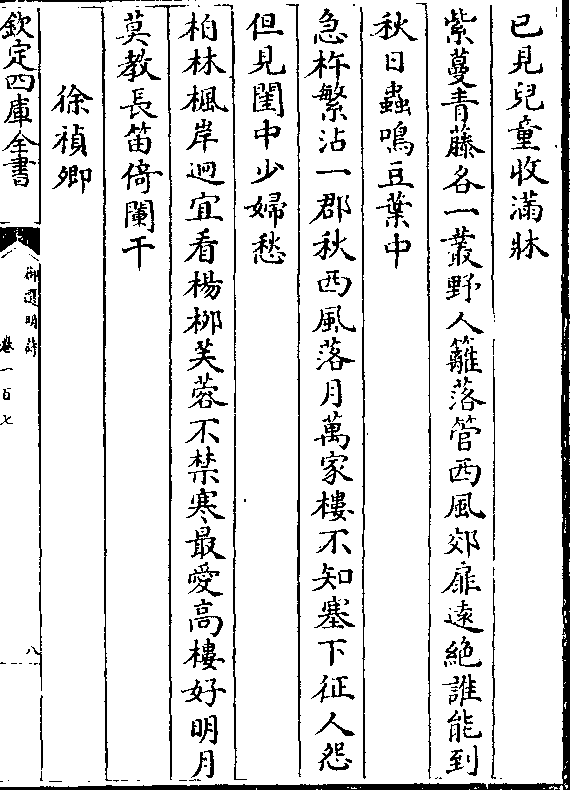 已見兒童收滿牀
紫蔓青藤各一叢野人籬落管西風郊扉遠絶誰能到
秋日蟲鳴豆葉中
急杵繁沾一郡秋西風落月萬家樓不知塞下征人怨
但見閨中少婦愁
柏林楓岸迥宜看楊柳芙蓉不禁寒最愛高樓好明月
莫教長笛倚闌干
徐禎卿
欽定四庫全書
御選明詩
卷一百七
八